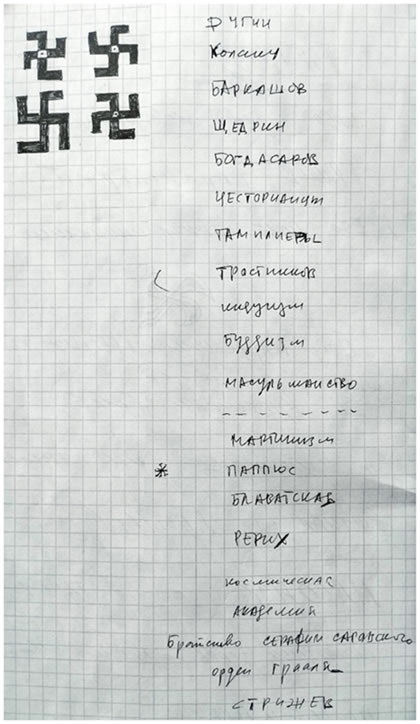 ДУГИН
БАРКАШОВ
ЩЕДРИН
БОГДАСАРОВ
НЕСТОРИАНИЗМ
ТАМПЛИЕРЫ
ТРОСТНИКОВ
индуизм
БУДДИЗМ
МАСУЛЬМАНСТВО
МАРТИНИЗМ
* ПАППЮС
БЛАВАТСКАЯ
РЕРИХ
космическая
АКАДЕМИЯ
Братство СЕРАФИМ САРОВСКОГО
орден грааля
СТРИЖЕВ